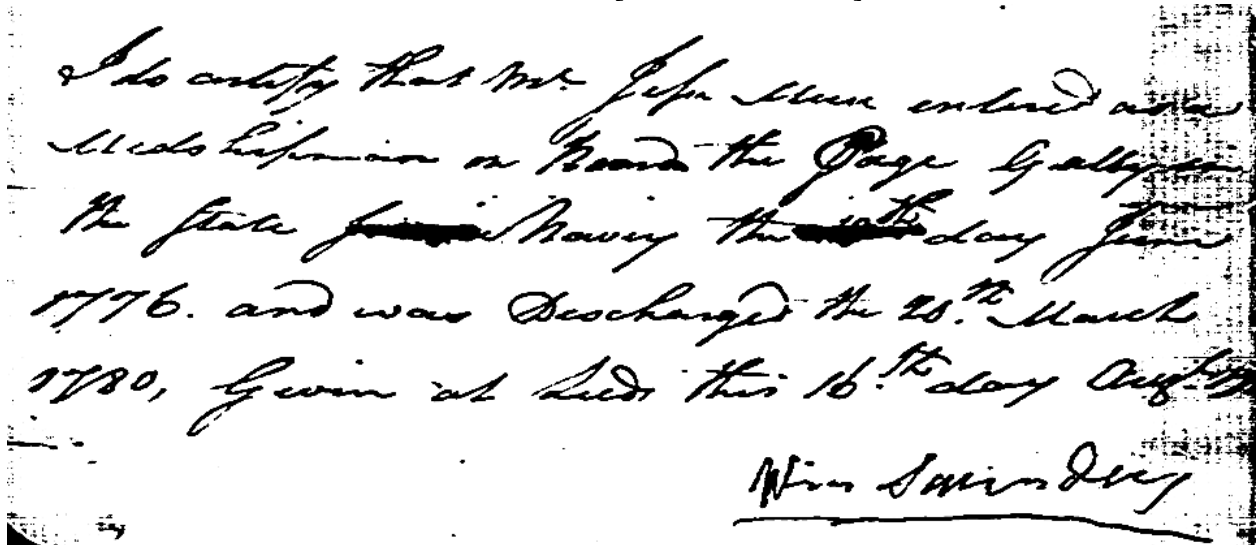 I do certify that Mr. John Muse entered as a
Midshipman on Board the Page Gally in
the State Navy the day June
1776. and was Discharged the 20.th March
1780, Given at Leeds this 16.th day Augt
Wm Saunders